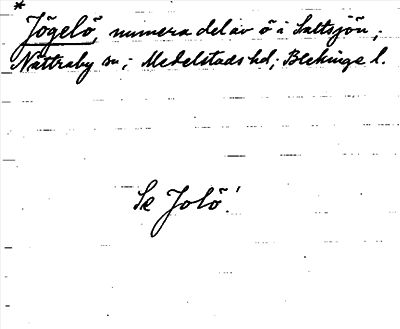 *
Jögelö, numera del av ö i Saltsjön,
Nättraby sn; Medelstads hd; Blekinge l.
Se Jolö!